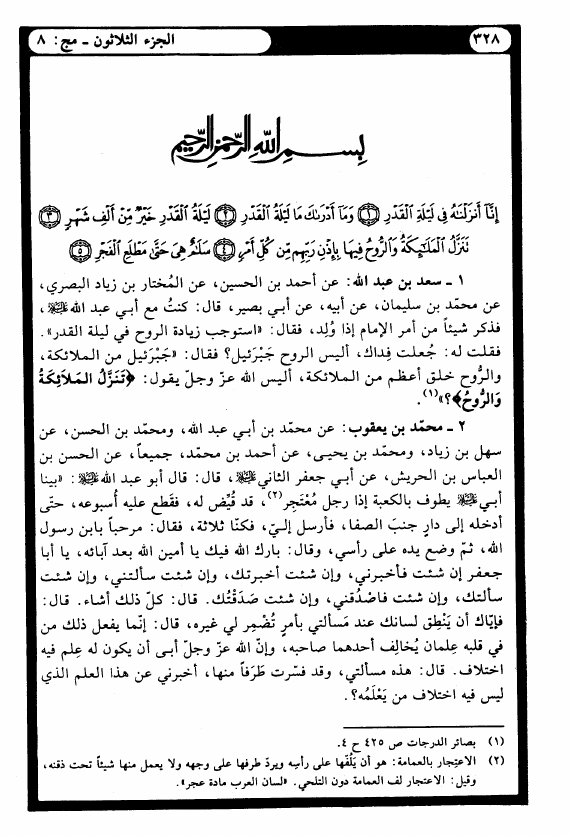 ٣٢٨
الجزء الثلاثون ـ مج: ٨
بسم الله الرحمن الرحيم
إِنَّا أَنزَلْنَاهُ فِي لَيْلَةِ الْقَدْرِ ﴿١﴾ وَمَا أَدْرَاكَ مَا لَيْلَةُ الْقَدْرِ ﴿٢﴾ لَيْلَةُ الْقَدْرِ خَيْرٌ مِّنْ أَلْفِ شَهْرٍ ﴿٣﴾
تَنَزَّلُ الْمَلَائِكَةُ وَالرُّوحُ فِيهَا بِإِذْنِ رَبِّهِم مِّن كُلِّ أَمْرٍ ﴿٤﴾ سَلَامٌ هِيَ حَتَّى مَطْلَعِ الْفَجْرِ ﴿٥﴾
١ ـ سعد بن عبد الله: عن أحمد بن الحسين، عن المُختار بن زياد البصري،
عن محمّد بن سليمان، عن أبيه، عن أبي بصير، قال: كنتُ مع أبي عبد الله ﷺ،
فذكر شيئاً من أمر الإمام إذا وُلِد، فقال: «استوجب زيادة الروح في ليلة القدر».
فقلت له: جُعلت فِداك، أليس الروح جَبْرَئيل؟ فقال: «جَبْرَئيل من الملائكة،
والرُّوح خلق أعظم من الملائكة، أليس الله عزّ وجلّ يقول: ﴿تَنَزَّلُ المَلاَئِكَةُ
وَالرُّوحُ﴾؟»(١).
٢ ـ محمّد بن يعقوب: عن محمّد بن أبي عبد الله، ومحمّد بن الحسن، عن
سهل بن زياد، ومحمّد بن يحيى، عن أحمد بن محمّد، جميعاً، عن الحسن بن
العباس بن الحريش، عن أبي جعفر الثاني ﷺ، قال: قال أبو عبد الله ﷺ: «بينا
أبي ﷺ يطوف بالكعبة إذا رجل مُعْتَجِر(٢)، قد قُيِّض له، فقَطع عليه أُسبوعه، حتّى
أدخله إلى دارٍ جنبَ الصفا، فأرسل إليّ، فكنّا ثلاثة، فقال: مرحباً بابن رسول
الله، ثمّ وضع يده على رأسي، وقال: بارك الله فيك يا أمين الله بعد آبائه، يا أبا
جعفر إن شئت فأخبرني، وإن شئت أخبرتك، وإن شئت سألتني، وإن شئت
سألتك، وإن شئت فاصْدُقني، وإن شئت صَدَقْتُك. قال: كلّ ذلك أشاء. قال:
فإيّاك أن يَنْطِق لسانك عند مَسألتي بأمرٍ تُضْمِر لي غيره، قال: إنّما يفعل ذلك من
في قلبه عِلمان يُخالِف أحدهما صاحبه، وإنّ الله عزّ وجلّ أبى أن يكون له عِلم فيه
اختلاف. قال: هذه مسألتي، وقد فسّرت طَرَفاً منها، أخبرني عن هذا العلم الذي
ليس فيه اختلاف من يَعْلَمُه؟.
(١) بصائر الدرجات ص ٤٢٥ ح ٤.
(٢) الاعتِجار بالعمامة: هو أن يَلُفّها على رأسِه ويردّ طرفها على وجهه ولا يعمل منها شيئاً تحت ذقنه،
وقيل: الاعتجار لف العمامة دون التلحي. «لسان العرب مادة عجر».